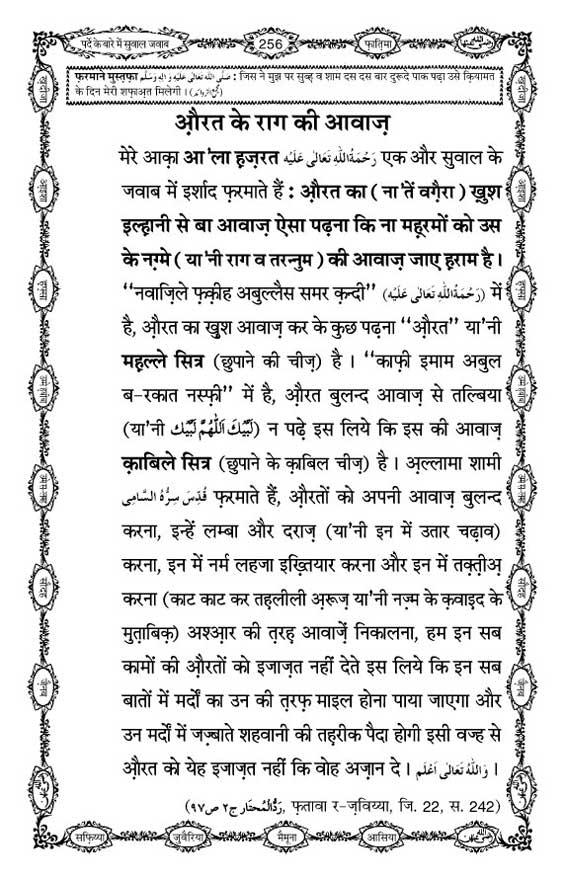 पर्दे के बारे में सुवाल जवाब
256
फ़ातिमा
फ़रमाने मुस्तफ़ा صَلَّى اللهُ تَعَالٰى عَلَيْهِ وَاٰلِهٖ وَسَلَّم : जिस ने मुझ पर सुब्ह़ व शाम दस दस बार दुरूदे पाक पढ़ा उसे क़ियामत
के दिन मेरी शफ़ाअ़त मिलेगी ।
औ़रत के राग की आवाज़
मेरे आक़ा आ'ला ह़ज़रत رَحْمَةُاللهِ تَعَالٰى عَلَيْه एक और सुवाल के
जवाब में इर्शाद फ़रमाते हैं : औ़रत का ( ना'तें वग़ैरा ) ख़ुश
इल्ह़ानी से बा आवाज़ ऐसा पढ़ना कि ना मह़रमों को उस
के नग़्मे ( या'नी राग व तरन्नुम ) की आवाज़ जाए ह़राम है ।
“नवाज़िले फ़क़ीह अबुल्लैस समर क़न्दी” (رَحْمَةُاللهِ تَعَالٰى عَلَيْه) में
है, औ़रत का ख़ुश आवाज़ कर के कुछ पढ़ना “औ़रत” या'नी
मह़ल्ले सित्र (छुपाने की चीज़) है । “काफ़ी इमाम अबुल
ब-रकात नस्फ़ी” में है, औ़रत बुलन्द आवाज़ से तल्बिया
(या'नी لَبَّيْكَ اَللّٰهُمَّ لَبَّيْك) न पढ़े इस लिये कि इस की आवाज़
क़ाबिले सित्र (छुपाने के क़ाबिल चीज़) है । अ़ल्लामा शामी
قُدِّسَ سِرُّهُ السَّامِى फ़रमाते हैं, औ़रतों को अपनी आवाज़ बुलन्द
करना, इन्हें लम्बा और दराज़ (या'नी इन में उतार चढ़ाव)
करना, इन में नर्म लहजा इख़्तियार करना और इन में तक़्त़ीअ़
करना (काट काट कर तह़लीली अ़रूज़ या'नी नज़्म के क़वाइद के
मुत़ाबिक़) अश्आ़र की त़रह़ आवाज़ें निकालना, हम इन सब
कामों की औ़रतों को इजाज़त नहीं देते इस लिये कि इन सब
बातों में मर्दों का उन की त़रफ़ माइल होना पाया जाएगा और
उन मर्दों में जज़्बाते शहवानी की तह़रीक पैदा होगी इसी वज्ह से
औ़रत को येह इजाज़त नहीं कि वोह अज़ान दे । وَاللهُ تَعَالٰى اَعْلَم ।
(رَدُّالْمُحتَار ج٢ ص٩٧, फ़तावा र-ज़विय्या, जि. 22, स. 242)
सफ़िय्या
जुवैरिया
मैमूना
आसिया